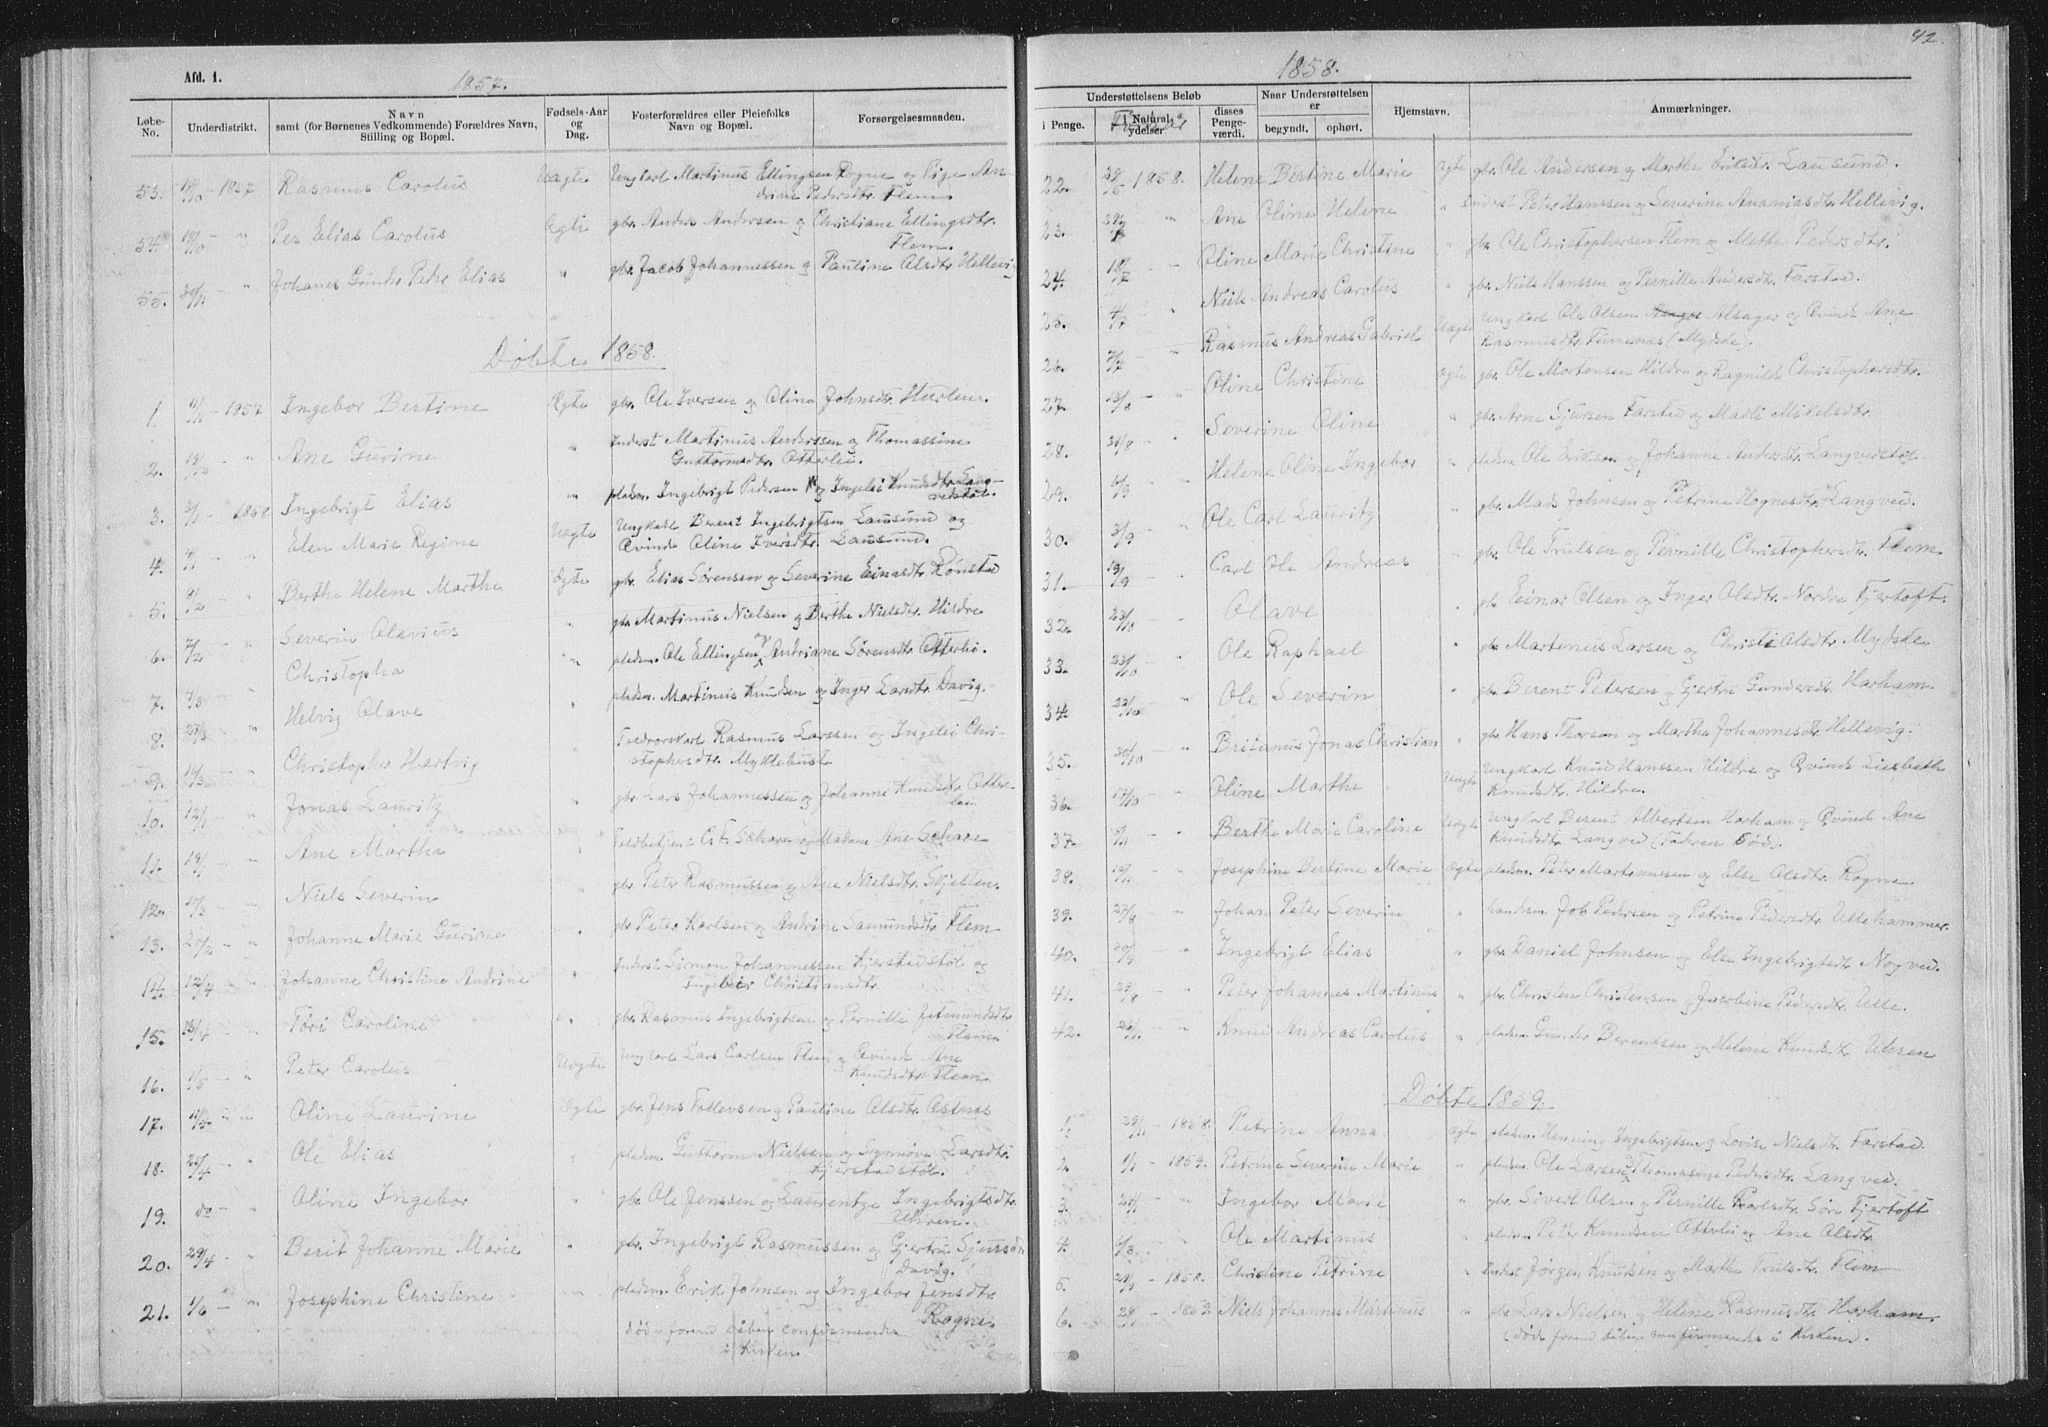 Afd. 1.
1857.
Løbe-No.
Underdistrikt.
Navn
samt (for Børnenes Vedkommende) Forældres Navn,
Stilling og Bopæl.
Fødsels-Aar
og
Dag.
Fosterforældres eller Pleiefolks
Navn og Bopæl.
Forsørgelsesmaaden.
53. 18/10 - 1857 Rasmus Carolus Uægte Ungkarl Martinus Ellingsen Rogne og Pige An-
drine Pedersdtr. Flem
54. 19/10 - " Per Elias Carolus Ægte gbr. Anders Andersen og Christiane Ellingsdtr.
Flem.
55. 30/11 - " Johanes Gunder Peder Elias " gbr. Jacob Johannessen og Pauline Olsdtr. Hellevig
Døbte 1858.
1. 11/11 - 1857 Ingebor Bertine Ægte gbr. Ole Iversen og Oline Johnsdtr. Hurlen.
2. " Ane Gurine " Inderst Martinus Anderssen og Thomassine
Guttormsdtr. Otterlei.
3. 2/1 - 1858 Ingebrigt Elias " pladsm. Ingebrigt Pedersen og Ingelei Knudsdtr. Lang-
vedstøl.
4. 4/1 - " Elen Marie Regine Uægte Ungkarl Berent Ingebrigtsen Lausund og
Qvinde Oline Iversdtr. Lausund.
5. 9/2 - " Berthe Helene Marthe Ægte gbr. Elias Sørensen og Severine Einarsdtr. Rønstad
6. 7/2 - " Severin Olavius " gbr. Martinus Nielsen og Berthe Nielsdtr. Hildre
7. 4/3 - " Christopha " pladsm. Ole Ellingsen og Andriane Sørensdtr. Otterlei.
8. 23/3 - " Helvig Olave " pladsm. Martinus Knudsen og Inger Larsdtr. Davig.
9. 16/3 - " Christopher Hartvig " Rasmus Larssen og Ingelei Chri-
stophersdtr. Myklebust
10. 12/1 - " Jonas Lauritz " gbr. Lars Johannessen og Johanne Knudsdtr. Otter-
lei.
11. 19/1 - " Ane Martha " Toldbetjent C. F. Schave og Madam Ane Schave
12. 17/3 - " Niels Severin " gbr. Peter Rasmussen og Ane Nielsdtr. Skjelten.
13. 21/2 - " Johanne Marie Gurine " gbr. Peter Karlsen og Andrine Samundsdtr. Flem
14. 12/4 - " Johanne Christine Andrine " Inderst Simon Johannessen Kjerstadstøl og
Ingebor Christiansdtr.
15. 15/4 - " Tóri Caroline " gbr. Rasmus Ingebrigtsen og Pernille Jetmundsdtr.
Flem
16. 1/5 - " Peter Carolus Uægte Ungkarl Lars Carlsen Flem og Qvinde Ane
Knudsdtr. Flem
17. " " Oline Laurine Ægte gbr. Jens Tollevsen og Pauline Olsdtr. Østnes
18. 25/4 - " Ole Elias " pladsm. Guttorm Nielsen og Synnøve Larsdtr.
Kjerstadstøl.
19. do - " Oline Ingebor " gbr. Ole Jenssen og Laurentze Ingebrigtsdtr.
Uhren.
20. 29/4 - " Berit Johanne Marie " gbr. Ingebrigt Rasmussen og Gjertru Sjursdtr
Davig.
21. 1/6 - " Josephine Christine pladsm. Erik Johnsen og Ingebor Jensdtr.
Rogne
død forend Dåben confirmeredes
i Kirken
42.
1858.
Understøttelsens Beløb
i Penge.
i Natural-
ydelser
Fødselsår
disses
Penge-
værdi.
Naar Understøttelsen
er
begyndt.
ophørt.
Hjemstavn.
Anmærkninger.
22. 28/5 - 1858. Helene Bestine Marie Ægte gbr. Ole Andersen og Marthe Eriksdtr. Lausund.
23. " Ane Oline Helene " Inderst Peter Hanssen og Severine Ananiasdtr. Hellevig.
24. 18/7 - " Oline Marie Christine " gbr. Ole Christophersen Flem og Mette Pedersdtr.
25. 4/7 Niels Andreas Carolus " gbr. Niels Hanssen og Pernille Andersdtr. Farstad.
26. 7/7 - " Rasmus Andreas Gabriel Uægte Ungkarl Ole Olsen Alsager og Qvinde Ane
Rasmusdtr. (Myrkle).
27. 13/8 - " Oline Christine Ægte gbr. Ole Mortensen Hildre og Ragnild Christophersdtr.
28. 31/8 - " Severine Oline " gbr. Arne Sjursen Farstad og Madli Mikelsdtr.
29. 6/9 " Helene Oline Ingebor " pladsm. Ole Eriksen og Johanne Andersdtr. Langvedstøl
30. 3/9 - " Ole Carl Lauritz " gbr. Mads Johnsen og Petrine Hognesdtr. Langved.
31. 19/9 - Carl Ole Andreas " gbr. Ole Trulsen og Pernille Christophersdtr. Flem
32. 23/10 - Olave " gbr. Einar Olsen og Inger Olsdtr. Nordre Fjertoft.
33. 23/10 - " Ole Raphael " gbr. Martinus Larsen og Christi Olsdtr. Myklebust
34. 22/10 - " Ole Severin " gbr. Berent Petersen og Gjertru Gundersdtr. Harham.
35. 30/10 - " Britanus Jonas Christian " gbr. Hans Thorsen og Martha Johannesdtr. Hellevig.
36. 17/10 - " Oline Marthe Uægte Ungkarl Knud Hanssen Hildre og Qvinde Lisbeth
Knudsdtr. Hildre.
37. - " Berthe Marie Caroline Uægte Ungkarl Berent Albertsen Harham og Qvinde Ane
Knudsdtr. Langved (Faderen død).
38. 10/11 - " Josephine Bertine Marie Ægte pladsm. Peter Martinussen og Else Olsdtr. Rogne
39. 27/8 - " Johan Peter Severin " handelsm. Job Pedersen og Petrine Pedersdtr. Ullehammer.
40. 20/9 - " Ingebrigt Elias " gbr. Daniel Johnsen og Else Ingebrigtsdtr. Nogved.
41. 29/8 - " Peter Johannes Martinus " gbr. Christen Christensen og Jacobine Pedersdtr. Ulle.
42. - " Knud Andreas Carolus " pladsm. Gunder Berentsen og Helene Knudsdtr Uhren
Døbte 1859.
1. 29/11 - 1858. Petrine Anna Ægte pladsm. Henning Ingebrigtsen og Lovise Nielsdtr. Farstad.
2. 1/1 - 1859. Petrine Severine Marie " pladsm. Ole Larsen og Thomassine Pedersdtr. Langved.
3. 25/1 - " Ingebor Marie " gbr. Sivert Olsen og Pernille Karlsdtr. Søre Fjertoft
4. 6/3. " Ole Martinus " pladsm. Peter Knudsen Otterlei og Ane Olsdtr.
5. - 1858. Christine Petrine " Inderst Jørgen Knudsen og Marthe Trulsdtr. Flem
6. - 1859. Niels Johannes Martinus " gbr. Lars Nielsen og Helene Rasmusdtr. Harham.
(død forend Dåben confirmeredes i Kirken.